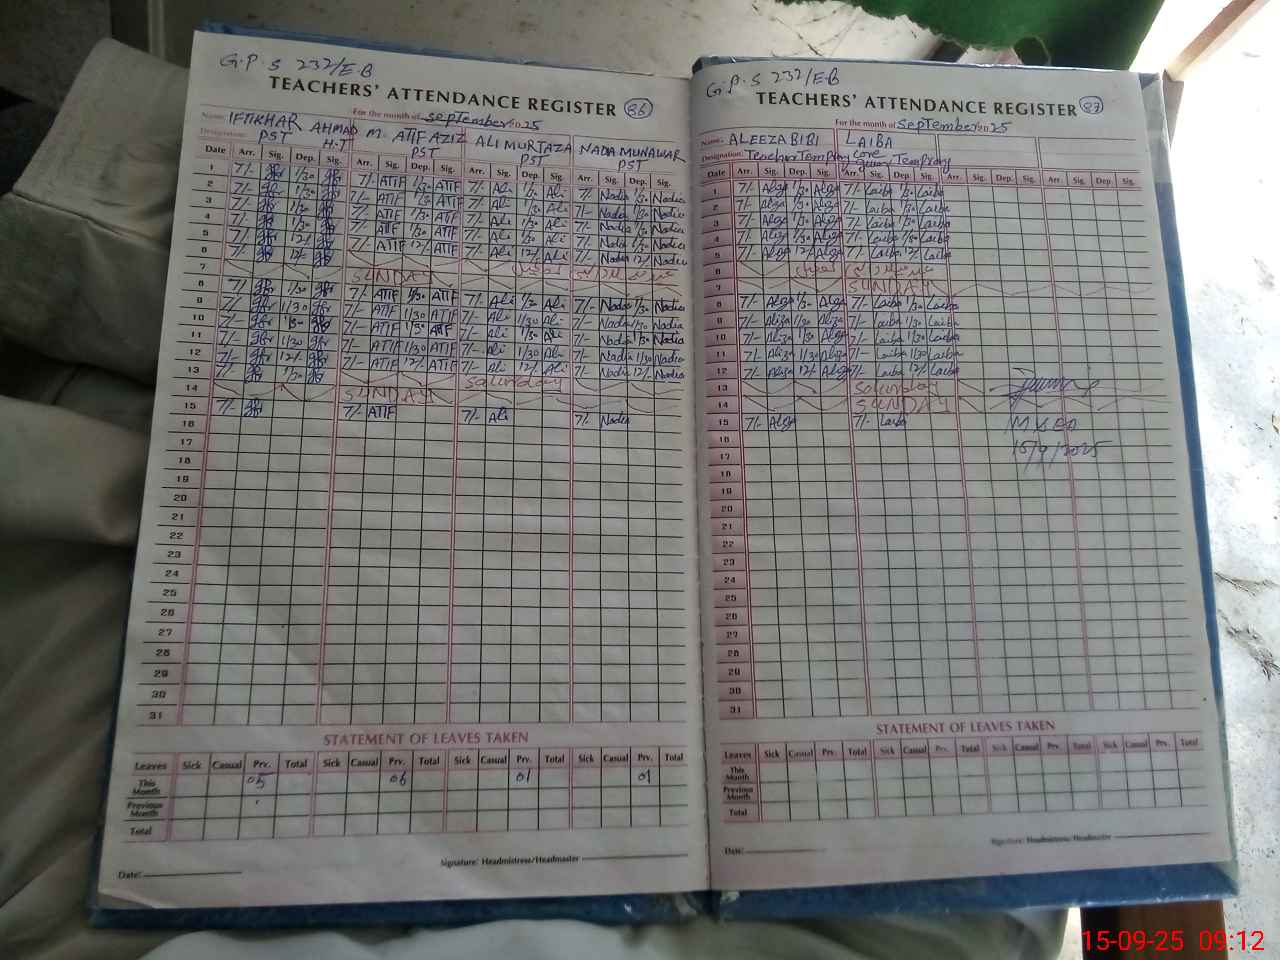 G.P.S 232/E-B
TEACHERS' ATTENDANCE REGISTER 86
For the month of September 2025
Name: IFTIKHAR AHMAD M. ATIF AZIZ ALI MURTAZA NADIA MUNAWAR
Designation: PST H.T PST PST PST
Date Arr. Sig. Dep. Sig. Arr. Sig. Dep. Sig. Arr. Sig. Dep. Sig. Arr. Sig. Dep. Sig.
1 7/- 1/30 7/- ATIF 1/30 ATIF 7/- Ali 1/30 Ali 7/- Nadia 1/30 Nadia
2 7/- 1/30 7/- ATIF 1/30 ATIF 7/- Ali 1/30 Ali 7/- Nadia 1/30 Nadia
3 7/- 1/30 7/- ATIF 1/30 ATIF 7/- Ali 1/30 Ali 7/- Nadia 1/30 Nadia
4 7/- 1/30 7/- ATIF 1/30 ATIF 7/- Ali 1/30 Ali 7/- Nadia 1/30 Nadia
5 7/- 12/- 7/- ATIF 12/- ATIF 7/- Ali 12/- Ali 7/- Nadia 12/- Nadia
6
7 SUNDAY
8 7/- 1/30 7/- ATIF 1/30 ATIF 7/- Ali 1/30 Ali 7/- Nadia 1/30 Nadia
9 7/- 1/30 7/- ATIF 1/30 ATIF 7/- Ali 1/30 Ali 7/- Nadia 1/30 Nadia
10 7/- 7/- ATIF 1/30 ATIF 7/- Ali 1/30 Ali 7/- Nadia 1/30 Nadia
11 7/- 1/30 7/- ATIF 1/30 ATIF 7/- Ali 1/30 Ali 7/- Nadia 1/30 Nadia
12 7/- 12/- 7/- ATIF 12/- ATIF 7/- Ali 12/- Ali 7/- Nadia 12/- Nadia
13 7/- 1/30 Saturday
14 SUNDAY
15 7/- 7/- ATIF 7/- Ali 7/- Nadia
16
17
18
19
20
21
22
23
24
25
26
27
28
29
30
31
STATEMENT OF LEAVES TAKEN
Leaves Sick Casual Prv. Total Sick Casual Prv. Total Sick Casual Prv. Total Sick Casual Prv. Total
This Month 05 06 01 01
Previous Month
Total
Signature: Headmistress/Headmaster
Date:
G.P.S 232/E-B
TEACHERS' ATTENDANCE REGISTER 87
For the month of September 2025
Name: ALEEZA BIBI LAIBA
Designation: Teacher Temprary Temprary
Date Arr. Sig. Dep. Sig. Arr. Sig. Dep. Sig. Arr. Sig. Dep. Sig. Arr. Sig. Dep. Sig.
1 7/- Aliza 1/30 Aliza 7/- Laiba 1/30 Laiba
2 7/- Aliza 1/30 Aliza 7/- Laiba 1/30 Laiba
3 7/- Aliza 1/30 Aliza 7/- Laiba 1/30 Laiba
4 7/- Aliza 1/30 Aliza 7/- Laiba 1/30 Laiba
5 7/- Aliza 12/- Aliza 7/- Laiba 12/- Laiba
6
7 SUNDAY
8 7/- Aliza 1/30 Aliza 7/- Laiba 1/30 Laiba
9 7/- Aliza 1/30 Aliza 7/- Laiba 1/30 Laiba
10 7/- Aliza 1/30 Aliza 7/- Laiba 1/30 Laiba
11 7/- Aliza 1/30 Aliza 7/- Laiba 1/30 Laiba
12 7/- Aliza 12/- Aliza 7/- Laiba 12/- Laiba
13 Saturday
14 SUNDAY
15 7/- Aliza 7/- Laiba
15/9/2025
16
17
18
19
20
21
22
23
24
25
26
27
28
29
30
31
STATEMENT OF LEAVES TAKEN
Leaves Sick Casual Prv. Total Sick Casual Prv. Total Sick Casual Prv. Total Sick Casual Prv. Total
This Month
Previous Month
Total
Signature: Headmistress/Headmaster
Date:
15-09-25 09:12